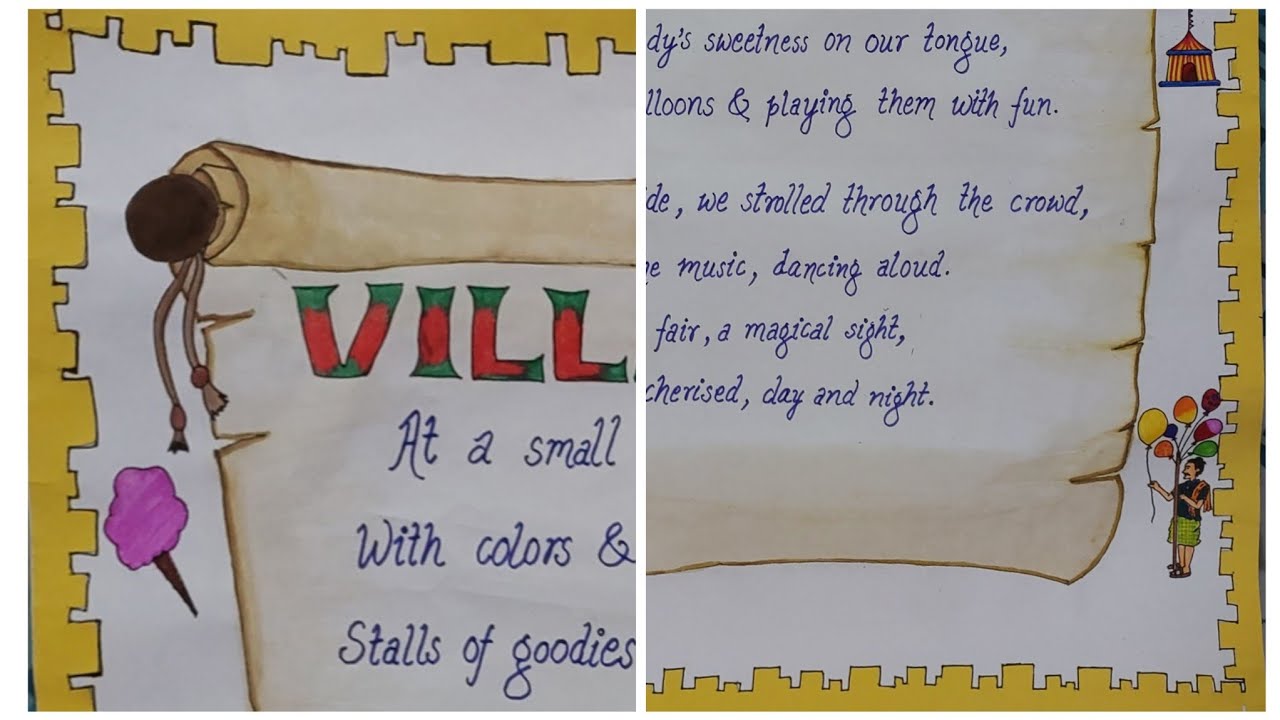 VILL
At a small
With colors &
Stalls of goodies
dy's sweetness on our tongue,
lloons & playing them with fun.
de, we strolled through the crowd,
e music, dancing aloud.
fair, a magical sight,
cherised, day and night.